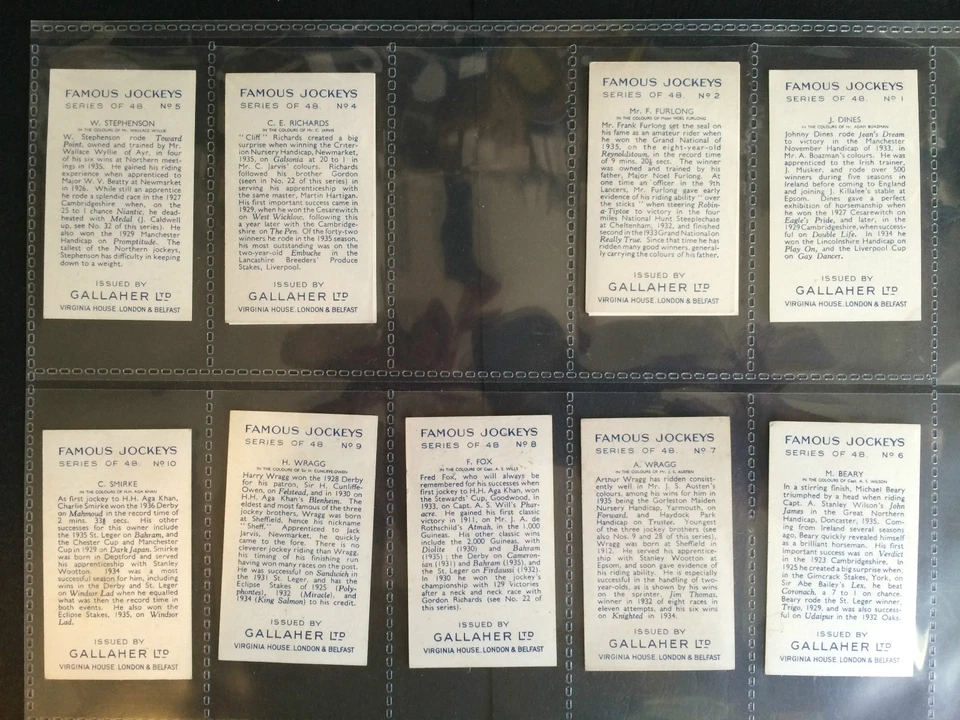 FAMOUS JOCKEYS
SERIES OF 48. Nº 5
W. STEPHENSON
IN THE COLOURS OF MR. WALLACE WYLLIE
W. Stephenson rode Toward
Point, owned and trained by Mr.
Wallace Wyllie of Ayr, in four
of his six wins at Northern meet-
ings in 1935. He gained his riding
experience when apprenticed to
Major W. V. Beatty at Newmarket
in 1926. While still an apprentice
he rode a splendid race in the 1927
Cambridgeshire when, on the
25 to 1 chance Niantic, he dead-
heated with Medal (J. Caldwell
up, see No. 32 of this series). He
also won the 1929 Manchester
Handicap on Promptitude. The
tallest of the Northern jockeys,
Stephenson has difficulty in keeping
down to a weight.
ISSUED BY
GALLAHER LTD
VIRGINIA HOUSE. LONDON & BELFAST
FAMOUS JOCKEYS
SERIES OF 48. Nº 4
C. E. RICHARDS
IN THE COLOURS OF MR. C. JARVIS
"Cliff" Richards created a big
surprise when winning the Criter-
ion Nursery Handicap, Newmarket,
1935, on Galsonia at 20 to 1 in
Mr. C. Jarvis' colours. Richards
followed his brother Gordon
(seen in No. 22 of this series) in
serving his apprenticeship with
the same master, Martin Hartigan.
His first important success came in
1929, when he won the Cesarewitch
on West Wicklow, following this
a year later with the Cambridge-
shire on The Pen. Of the forty-two
winners he rode in the 1935 season,
his most outstanding was on the
two-year-old Embuche in the
Lancashire Breeders' Produce
Stakes, Liverpool.
ISSUED BY
GALLAHER LTD
VIRGINIA HOUSE. LONDON & BELFAST
FAMOUS JOCKEYS
SERIES OF 48. Nº 2
Mr. F. FURLONG
IN THE COLOURS OF MAJOR NOEL FURLONG
Mr. Frank Furlong set the seal on
his fame as an amateur rider when
he won the Grand National of
1935, on the eight-year-old
Reynoldstown, in the record time
of 9 mins. 20⅕ secs. The winner
was owned and trained by his
father, Major Noel Furlong. At
one time an officer in the 9th
Lancers, Mr. Furlong gave early
evidence of his riding ability "over
the sticks" when steering Robin-
a-Tiptoe to victory in the four
miles National Hunt Steeplechase
at Cheltenham, 1932, and finished
second in the 1933 Grand National on
Really True. Since that time he has
ridden many good winners, general-
ly carrying the colours of his father.
ISSUED BY
GALLAHER LTD
VIRGINIA HOUSE. LONDON & BELFAST
FAMOUS JOCKEYS
SERIES OF 48. Nº 1
J. DINES
IN THE COLOURS OF MR. ADAM BOAZMAN
Johnny Dines rode Jean's Dream
to victory in the Manchester
November Handicap of 1933, in
Mr. A. Boazman's colours. He was
apprenticed to the Irish trainer,
J. Musker, and rode over 500
winners during five seasons in
Ireland before coming to England
and joining J. Killalee's stable at
Epsom. Dines gave a perfect
exhibition of horsemanship when
he won the 1927 Cesarewitch on
Eagle's Pride, and later, in the
1929 Cambridgeshire, when success-
ful on Double Life. In 1934 he
won the Lincolnshire Handicap on
Play On, and the Liverpool Cup
on Gay Dancer.
ISSUED BY
GALLAHER LTD
VIRGINIA HOUSE. LONDON & BELFAST
FAMOUS JOCKEYS
SERIES OF 48. Nº 10
C. SMIRKE
IN THE COLOURS OF H.H. AGA KHAN
As first jockey to H.H. Aga Khan,
Charlie Smirke won the 1936 Derby
on Mahmoud in the record time of
2 mins. 33⅘ secs. His other
successes for this owner include
the 1935 St. Leger on Bahram, and
the Chester Cup and Manchester
Cup in 1929 on Dark Japan. Smirke
was born in Deptford and served
his apprenticeship with Stanley
Wootton. 1934 was a most
successful season for him, including
wins in the Derby and St. Leger
on Windsor Lad when he equalled
what was then the record time in
both events. He also won the
Eclipse Stakes, 1935, on Windsor
Lad.
ISSUED BY
GALLAHER LTD
VIRGINIA HOUSE. LONDON & BELFAST
FAMOUS JOCKEYS
SERIES OF 48. Nº 9
H. WRAGG
IN THE COLOURS OF SIR H. CUNLIFFE-OWEN
Harry Wragg won the 1928 Derby
for his patron, Sir H. Cunliffe-
Owen, on Felstead, and in 1930 on
H.H. Aga Khan's Blenheim. The
eldest and most famous of the three
jockey brothers, Wragg was born
at Sheffield, hence his nickname
"Sheff." Apprenticed to Jack
Jarvis, Newmarket, he quickly
came to the fore. There is no
cleverer jockey riding than Wragg,
his timing of his finishing run
having won many races on the post.
He was successful on Sandwich in
the 1931 St. Leger, and has the
Eclipse Stakes of 1925 (Poly-
phontes), 1932 (Miracle), and
1934 (King Salmon) to his credit.
ISSUED BY
GALLAHER LTD
VIRGINIA HOUSE. LONDON & BELFAST
FAMOUS JOCKEYS
SERIES OF 48 Nº 8
F. FOX
IN THE COLOURS OF CAPT. A. S. WILLS
Fred Fox, who will always be
remembered for his successes when
first jockey to H.H. Aga Khan, won
the Stewards' Cup, Goodwood, in
1933, on Capt. A. S. Will's Phar-
acre. He gained his first classic
victory in 1911, on Mr. J. A. de
Rothschild's Atmah, in the 1,000
Guineas. His other classic wins
include the 2,000 Guineas, with
Diolite (1930) and Bahram
(1935); the Derby on Cameron-
ian (1931) and Bahram (1935), and
the St. Leger on Firdaussi (1932).
In 1930 he won the jockey's
championship with 129 victories
after a neck and neck race with
Gordon Richards (see No. 22 of
this series).
ISSUED BY
GALLAHER LTD
VIRGINIA HOUSE. LONDON & BELFAST
FAMOUS JOCKEYS
SERIES OF 48. Nº 7
A. WRAGG
IN THE COLOURS OF MR. J. S. AUSTEN
Arthur Wragg has ridden consist-
ently well in Mr. J. S. Austen's
colours, among his wins for him in
1935 being the Gorleston Maiden
Nursery Handicap, Yarmouth, on
Forward, and Haydock Park
Handicap on Trustee. Youngest
of the three jockey brothers (see
also Nos. 9 and 28 of this series),
Wragg was born at Sheffield in
1912. He served his apprentice-
ship with Stanley Wootton at
Epsom, and soon gave evidence of
his riding ability. He is especially
successful in the handling of two-
year-olds, as is shown by his wins
on the sprinter, Jim Thomas,
winner in 1932 of eight races in
eleven attempts, and his six wins
on Knighted in 1934.
ISSUED BY
GALLAHER LTD
VIRGINIA HOUSE. LONDON & BELFAST
FAMOUS JOCKEYS
SERIES OF 48. Nº 6
M. BEARY
IN THE COLOURS OF CAPT. A. S. WILSON
In a stirring finish, Michael Beary
triumphed by a head when riding
Capt. A. Stanley Wilson's John
James in the Great Northern
Handicap, Doncaster, 1935. Com-
ing from Ireland several seasons
ago, Beary quickly revealed himself
as a brilliant horseman. His first
important success was on Verdict
in the 1923 Cambridgeshire. In
1925 he created a big surprise when,
in the Gimcrack Stakes, York, on
Sir Abe Bailey's Lex, he beat
Coronach, a 7 to 1 on chance.
Beary rode the St. Leger winner,
Trigo, 1929, and was also success-
ful on Udaipur in the 1932 Oaks.
ISSUED BY
GALLAHER LTD
VIRGINIA HOUSE. LONDON & BELFAST